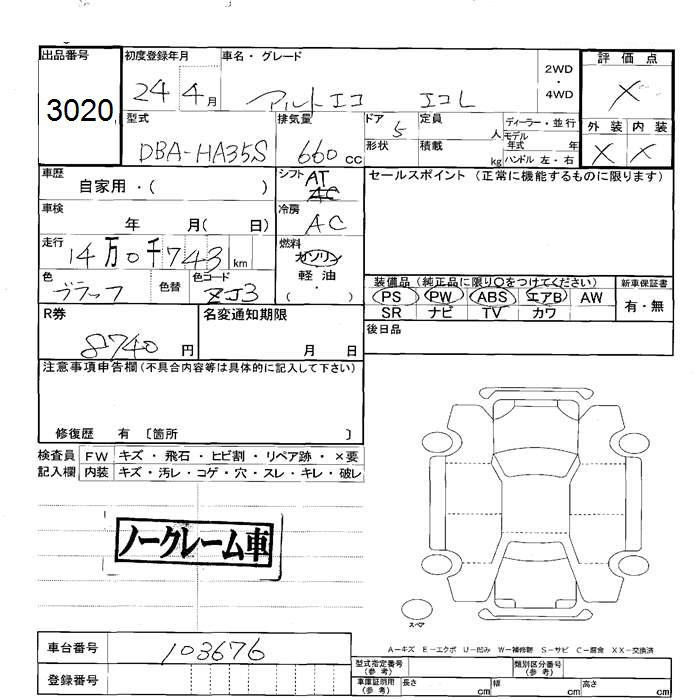 出品番号 初度登録年月 車名・グレード 2WD・4WD 評価点
3020 24 4月 アルトエコ エコL X
型式 排気量 ドア 定員 ディーラー・並行 外装 内装
DBA-HA35S 660cc 5 人 モデル年式 年 X X
形状 積載 kg ハンドル 左・右
車歴 シフト AT セールスポイント (正常に機能するものに限ります)
自家用・( )
車検 冷房 AC
年 月( 日)
走行 燃料 ガソリン
14万0千743km 軽油
色 色替 色コード ( )
ブラック ZJ3
装備品 (純正品に限り○をつけてください) 新車保証書
PS PW ABS エアB AW 有・無
SR ナビ TV カワ
R券 名変通知期限 後日品
8740円 月 日
注意事項申告欄(不具合内容等は具体的に記入して下さい)
修復歴 有 〔箇所 〕
検査員 FW キズ・飛石・ヒビ割・リペア跡・×要
記入欄 内装 キズ・汚レ・コゲ・穴・スレ・キレ・破レ
ノークレーム車
スペア
A-キズ E-エクボ U-凹み W-補修跡 S-サビ C-腐食 XX-交換済
車台番号 103676
登録番号
型式指定番号(参考) 類別区分番号(参考)
車庫証明用(参考) 長さ cm 幅 cm 高さ cm